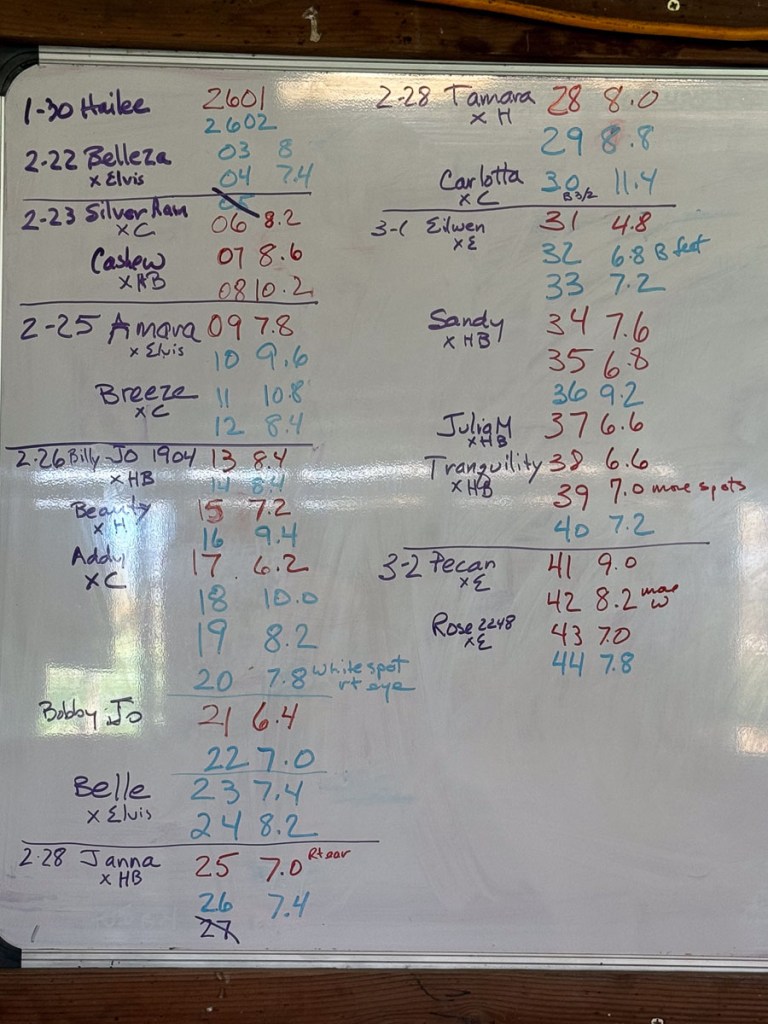 1-30 Hailee 2601
2602
2-22 Belleza 03 8
x Elvis 04 7.4
05
2-23 Silver Ram 06 8.2
x C
Cashew 07 8.6
x HB 08 10.2
2-25 Amara 09 7.8
x Elvis 10 9.6
Breeze 11 10.8
x C 12 8.4
2-26 Billy-Jo 1904 13 8.4
x HB 14 8.4
Beauty 15 7.2
x H 16 9.4
Addy 17 6.2
x C 18 10.0
19 8.2
20 7.8 white spot
rt eye
Bobby Jo 21 6.4
22 7.0
Belle 23 7.4
x Elvis 24 8.2
2-28 Janna 25 7.0 Rt ear
x HB 26 7.4
27
2-28 Tamara 28 8.0
x H 29 8.8
Carlotta 30 11.4
x C B 3/2
3-1 Eilwen 31 4.8
x E 32 6.8 B feet
33 7.2
Sandy 34 7.6
x HB 35 6.8
36 9.2
Julia M 37 6.6
x HB
Tranquility 38 6.6
x HB 39 7.0 more spots
40 7.2
3-2 Pecan 41 9.0
x E 42 8.2 more
w
Rose 2248 43 7.0
x E 44 7.8